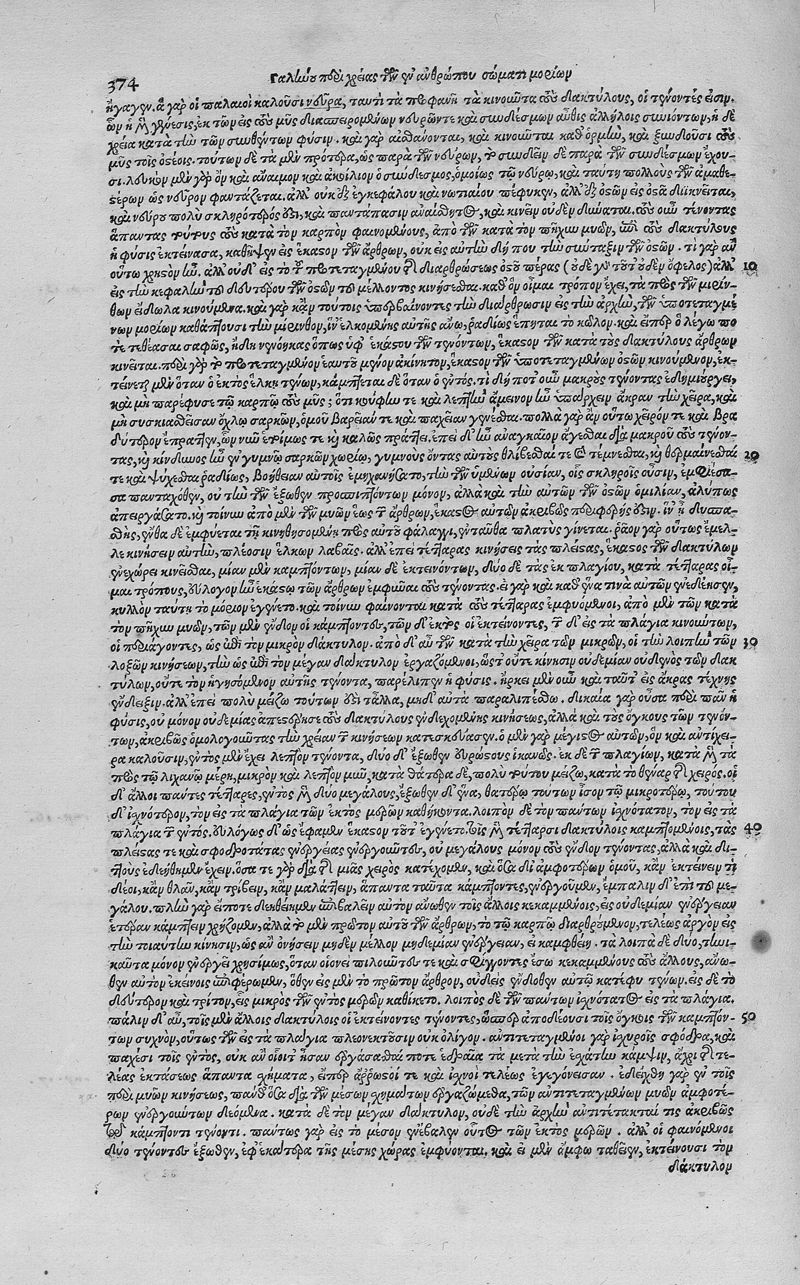 374 Γαληνοῦ περὶ χρείας τῶν ἐν ἀνθρώπου σώματι μορίων
ἤγαγεν. ἃ γὰρ οἱ παλαιοὶ καλοῦσι νεῦρα, ταυτὶ τὰ προφανῆ τὰ κινοῦντα τοὺς δακτύλους, οἱ τένοντές εἰσιν.
ὧν ἡ μὲν γένεσις, ἐκ τῶν εἰς τοὺς μῦς διασπειρομένων νεύρων τε καὶ συνδέσμων αὖθις ἀλλήλοις συνιόντων, ἡ δὲ
χρεία κατὰ τὴν τῶν συνθέντων φύσιν. καὶ γὰρ αἰσθάνονται, καὶ κινοῦνται καθ' ὁρμὴν, καὶ ξυνδοῦσι τοὺς
μῦς τοῖς ὀστέοις. τούτων δὲ τὰ μὲν πρότερα, ὡς παρὰ τῶν νεύρων, τὸ συνδεῖν δὲ παρὰ τῶν συνδέσμων ἔχου-
σι. λευκὸν μὲν γὰρ ὂν καὶ ἄναιμον καὶ ἀκοίλιον ὁ σύνδεσμος, ὁμοίως τῷ νεύρῳ, καὶ ταύτῃ πολλοὺς τῶν ἀμαθε-
στέρων ὡς νεῦρον φαντάζεται. ἀλλ' οὐκ ἐξ ἐγκεφάλου καὶ νωτιαίου πέφυκεν, ἀλλ' ἐξ ὀστῶν εἰς ὀστᾶ διϊκνεῖται,
καὶ νεύρου πολὺ σκληρότερός ἐστι, καὶ παντάπασιν ἀναίσθητος, καὶ κινεῖν οὐδὲν δύναται. τοὺς οὖν τένοντας
ἅπαντας τούτους τοὺς κατὰ τὸν καρπὸν φαινομένους, ἀπὸ τῶν κατὰ τὸν πῆχυν μυῶν, ἐπὶ τοὺς δακτύλους
ἡ φύσις ἐκτείνασα, καθῆψεν εἰς ἕκαστον τῶν ἄρθρων, οὐκ εἰς αὐτὴν δή που τὴν σύνταξιν τῶν ὀστῶν. τί γὰρ ἂν
οὕτω χρηστὸν ἦν. ἀλλ' οὐδ' εἰς τὸ τοῦ προτεταγμένου τῆς διαρθρώσεως ὀστοῦ πέρας (οὐδὲ γὰρ τούτου οὐδὲν ὄφελος) ἀλλ' 10
εἰς τὴν κεφαλὴν τοῦ δευτέρου τῶν ὀστῶν τοῦ μέλλοντος κινήσεσθαι. καθ' ὃν οἶμαι τρόπον ἔχει, τὰ πρὸς τῶν μηρίν-
θων εἴδωλα κινούμενα. καὶ γὰρ κᾀν τούτοις ὑπερβαίνοντες τὴν διάρθρωσιν εἰς τὴν ἀρχὴν, τῶν ὑποτεταγμέ-
νων μορίων καθάπτουσι τὴν μήρινθον, ἵν' ἑλκομένης αὐτῆς ἄνω, ῥαδίως ἕπηται τὸ κῶλον. καὶ εἴπερ ὃ λέγω πο-
τε τεθέασαι σαφῶς, ἤδη νενόηκας ὅπως ὑφ' ἑκάστου τῶν τενόντων, ἕκαστον τῶν κατὰ τοὺς δακτύλους ἄρθρων
κινεῖται. περὶ γὰρ τὸ προτεταγμένον ἑαυτοῦ μένον ἀκίνητον, ἕκαστον τῶν ὑποτεταγμένων ὀστῶν κινούμενον, ἐκ-
τείνεται μὲν ὅταν ὁ ἐκτὸς ἕλκῃ τένων, κάμπτεται δὲ ὅταν ὁ ἐντός. τί δή ποτ' οὖν μακροὺς τένοντας ἐδημιούργει,
καὶ μὴ παρέφυσε τῷ καρπῷ τοὺς μῦς; ὅτι κούφην τε καὶ λεπτὴν ἄμεινον ἦν ὑπάρχειν ἄκραν τὴν χεῖρα, καὶ
μὴ συσκιασθεῖσαν ὄχλῳ σαρκῶν, ὁμοῦ βαρεῖαν τε καὶ παχεῖαν γενέσθαι. πολλὰ γὰρ ἂν οὕτω χεῖρόν τε καὶ βρα
δύτερον ἔπραττεν, ὧν νῦν ἑτοίμως τε καὶ καλῶς πράττει. ἐπεὶ δ' ἦν ἀναγκαῖον ἄγεσθαι διὰ μακροῦ τοὺς τένον-
τας, καὶ κίνδυνος ἦν ἐν γυμνῷ σαρκῶν χωρίῳ, γυμνοὺς ὄντας αὐτοὺς θλίβεσθαί τε καὶ τέμνεσθαι, καὶ θερμαίνεσθαί 20
τε καὶ ψύχεσθαι ῥαδίως, βοήθειαν αὐτοῖς ἐμηχανήσατο, τὴν τῶν ὑμένων οὐσίαν, οἷς σκληροῖς οὖσιν, ἠμφίεσα-
σα πανταχόθεν, οὐ τὴν τῶν ἔξωθεν προσπιπτόντων μόνον, ἀλλὰ καὶ τὴν αὐτῶν τῶν ὀστῶν ὁμιλίαν, ἀλύπως
ἀπειργάζατο. καὶ τοίνυν ἀπὸ μὲν τῶν μυῶν ἕως τῶν ἄρθρων, ἕκαστος αὐτῶν ἀκριβῶς περιφερής ἐστιν.
θης, ἔνθα δὲ ἐμφύεται τῇ κινηθησομένῃ πρὸς αὐτοῦ φάλαγγι, ἐνταῦθα πλατὺς γίνεται. ῥᾷον γὰρ οὕτως ἔμελ-
λε κινήσειν αὐτὴν, πλέοσιν ἕλκων λαβαῖς. ἀλλ' ἐπεὶ τέτταρας κινήσεις τὰς πλείστας, ἕκαστος τῶν δακτύλων
ἐνεχώρει κινεῖσθαι, μίαν μὲν καμπτόντων, μίαν δὲ ἐκτεινόντων, δύο δὲ τὰς ἐκ πλαγίου, κατὰ τέτταρας οἶ-
μαι τρόπους, εὔλογον ἦν ἑκάστῳ τῶν ἄρθρων ἐμφῦναι τοὺς τένοντας. εἰ γὰρ καὶ καθ' ἕνα τινὰ αὐτῶν ἐνεδέησεν,
κυλλὸν ταύτῃ τὸ μόριον ἐγένετο. καὶ τοίνυν φαίνονται κατὰ τοὺς τέτταρας ἐμφυόμενοι, ἀπὸ μὲν τῶν κατὰ
τὸν πῆχυν μυῶν, τῶν μὲν ἔνδον οἱ κάμπτοντες, τῶν δ' ἐκτὸς οἱ ἐκτείνοντες, τῶν δ' εἰς τὰ πλάγια κινούντων,
οἱ περιάγοντες, ὡς ἐπὶ τὸν μικρὸν δάκτυλον. ἀπὸ δ' αὖ τῶν κατὰ τὴν χεῖρα τῶν μικρῶν, οἱ τὴν λοιπὴν τῶν 30
λοξῶν κινήσεων, τὴν ὡς ἐπὶ τὸν μέγαν δάκτυλον ἐργαζόμενοι, ὥστ' οὔτε κίνησιν οὐδεμίαν οὐδενὸς τῶν δακ
τύλων, οὔτε τὸν ἡγησόμενον αὐτῆς τένοντα, παρέλιπεν ἡ φύσις. ἤρκει μὲν οὖν καὶ ταῦτ' εἰς ἄκρας τέχνης
ἔνδειξιν. ἀλλ' ἐπεὶ πολὺ μείζω τούτων ἐστὶ τἆλλα, μηδ' αὐτὰ παραλιπέσθω. δικαία γὰρ οὖσα περὶ πᾶν ἡ
φύσις, οὐ μόνον οὐδεμίας ἀπεστέρησε τοὺς δακτύλους ἐνδεχομένης κινήσεως, ἀλλὰ καὶ τοὺς ὄγκους τῶν τενόν-
των, ἀκριβῶς ὁμολογοῦντας τὴν χρείαν τῶν κινήσεων κατεσκεύασεν. ὁ μὲν γὰρ μέγιστος αὐτῶν, ὃν καὶ ἀντίχει-
ρα καλοῦσιν, ἐντὸς μὲν ἔχει λεπτὸν τένοντα, δύο δ' ἔξωθεν εὐρώστους ἱκανῶς. ἐκ δὲ τῶν πλαγίων, κατὰ μὲν τὰ
πρὸς τῷ λιχανῷ μέρη, μικρὸν καὶ λεπτὸν μῦν, κατὰ θάτερα δὲ, πολὺ τούτου μείζω, κατὰ τὸ θέναρ τῆς χειρός. οἱ
δ' ἄλλοι πάντες τέτταρες, ἐντὸς μὲν δύο μεγάλους, ἔξωθεν δ' ἕνα, θατέρῳ τούτων ἴσον τῷ μικροτέρῳ, τούτου
δ' ἰσχνότερον, τὸν εἰς τὰ πλάγια τῶν ἐκτὸς μερῶν καθήκοντα. λοιπὸν δὲ τὸν πάντων ἰσχνότατον, τὸν εἰς τὰ
πλάγια τῶν ἐντός. εὐλόγως δ' ὡς ἔφαμεν ἕκαστον τούτων ἐγένετο. τοῖς μὲν τέτταρσι δακτύλοις καμπτομένοις, τὰς 40
πλείστας τε καὶ σφοδροτάτας ἐνεργείας ἐνεργοῦντες, οὐ μεγάλους μόνον τοὺς ἔνδον τένοντας, ἀλλὰ καὶ διτ-
τοὺς ἐδεήθημεν ἔχειν. ὅσα τε γὰρ διὰ τῆς μιᾶς χειρὸς κατέχομεν, καὶ ὅσα δι' ἀμφοτέρων ὁμοῦ, κᾂν ἐκτείνειν τι
δέοι, κᾂν θλᾶν, κᾂν τρίβειν, κᾂν μαλάττειν, ἅπαντα ταῦτα κάμπτοντες, ἐνεργοῦμεν, ἔμπαλιν δ' ἐπὶ τοῦ με-
γάλου. πλὴν γὰρ εἴποτε δεηθείημεν ἐπιβαλεῖν αὐτὸν ἄνωθεν τοῖς ἄλλοις κεκαμμένοις, εἰς οὐδεμίαν ἐνέργειαν
ἑτέραν κάμπτειν χρῄζομεν, ἀλλὰ τὸ μὲν πρῶτον αὐτοῦ τῶν ἄρθρων, τὸ τῷ καρπῷ διαρθρούμενον, τελέως ἀργὸν εἰς
τὴν τοιαύτην κίνησιν, ὡς ἂν ὀνήσειν μηδὲν μέλλον μηδεμίαν ἐνέργειαν, εἰ καμφθείη. τὰ λοιπὰ δὲ δύο, τηνι-
καῦτα μόνον ἐνεργεῖ χρησίμως, ὅταν οἱονεὶ πιλοῦντές τε καὶ σφίγγοντες ἔσω κεκαμμένους τοὺς ἄλλους, ἄνω-
θεν αὐτὸν ἐκείνοις ἐπιφέρωμεν, ὅθεν εἰς μὲν τὸ πρῶτον ἄρθρον, οὐδεὶς ἔνδοθεν αὐτῷ κατέφυ τένων. εἰς δὲ τὸ
δεύτερον καὶ τρίτον, εἷς μικρὸς τῶν ἐντὸς μερῶν καθίκετο. λοιπὸς δὲ τῶν πάντων ἰσχνότατος εἰς τὰ πλάγια.
πάλιν δ' αὖ, τοῖς μὲν ἄλλοις δακτύλοις οἱ ἐκτείνοντες τένοντες, ὥσπερ ἀποδέουσι τοῖς ὄγκοις τῶν καμπτόν- 50
των συχνὸν, οὕτως τῶν εἰς τὰ πλάγια πλεονεκτοῦσιν οὐκ ὀλίγον. ἀντιτεταγμένοι γὰρ ἰσχυροῖς σφόδρα, καὶ
παχέσι τοῖς ἐντός, οὐκ ἂν οἷοί τ' ἦσαν ἐργάσασθαί ποτε ἑδραῖα τὰ μετὰ τὴν ἐσχάτην κάμψιν, ἄχρι τῆς τε-
λέας ἐκτάσεως ἅπαντα σχήματα, εἴπερ ἄρρωστοί τε καὶ ἰσχνοὶ τελέως ἐγεγόνεισαν. ἐδείχθη γὰρ ἐν τοῖς
περὶ μυῶν κινήσεως, πάνθ' ὅσα διὰ τῶν μέσων σχημάτων ἐργαζώμεθα, τῶν ἀντιτεταγμένων μυῶν ἀμφοτέ-
ρων ἐνεργούντων δεόμενα. κατὰ δὲ τὸν μέγαν δάκτυλον, οὐδὲ τὴν ἀρχὴν ἀντιτέτακταί τις ἀκριβῶς
τῷ κάμπτοντι τένοντι. πάντως γὰρ εἰς τὸ μέσον ἐνέβαλεν οὗτος τῶν ἐκτὸς μερῶν. ἀλλ' οἱ φαινόμενοι
δύο τένοντες ἔξωθεν, ἐφ' ἑκάτερα τῆς μέσης χώρας ἐμφύονται. καὶ εἰ μὲν ἄμφω ταθεῖεν, ἐκτείνουσι τὸν
δάκτυλον